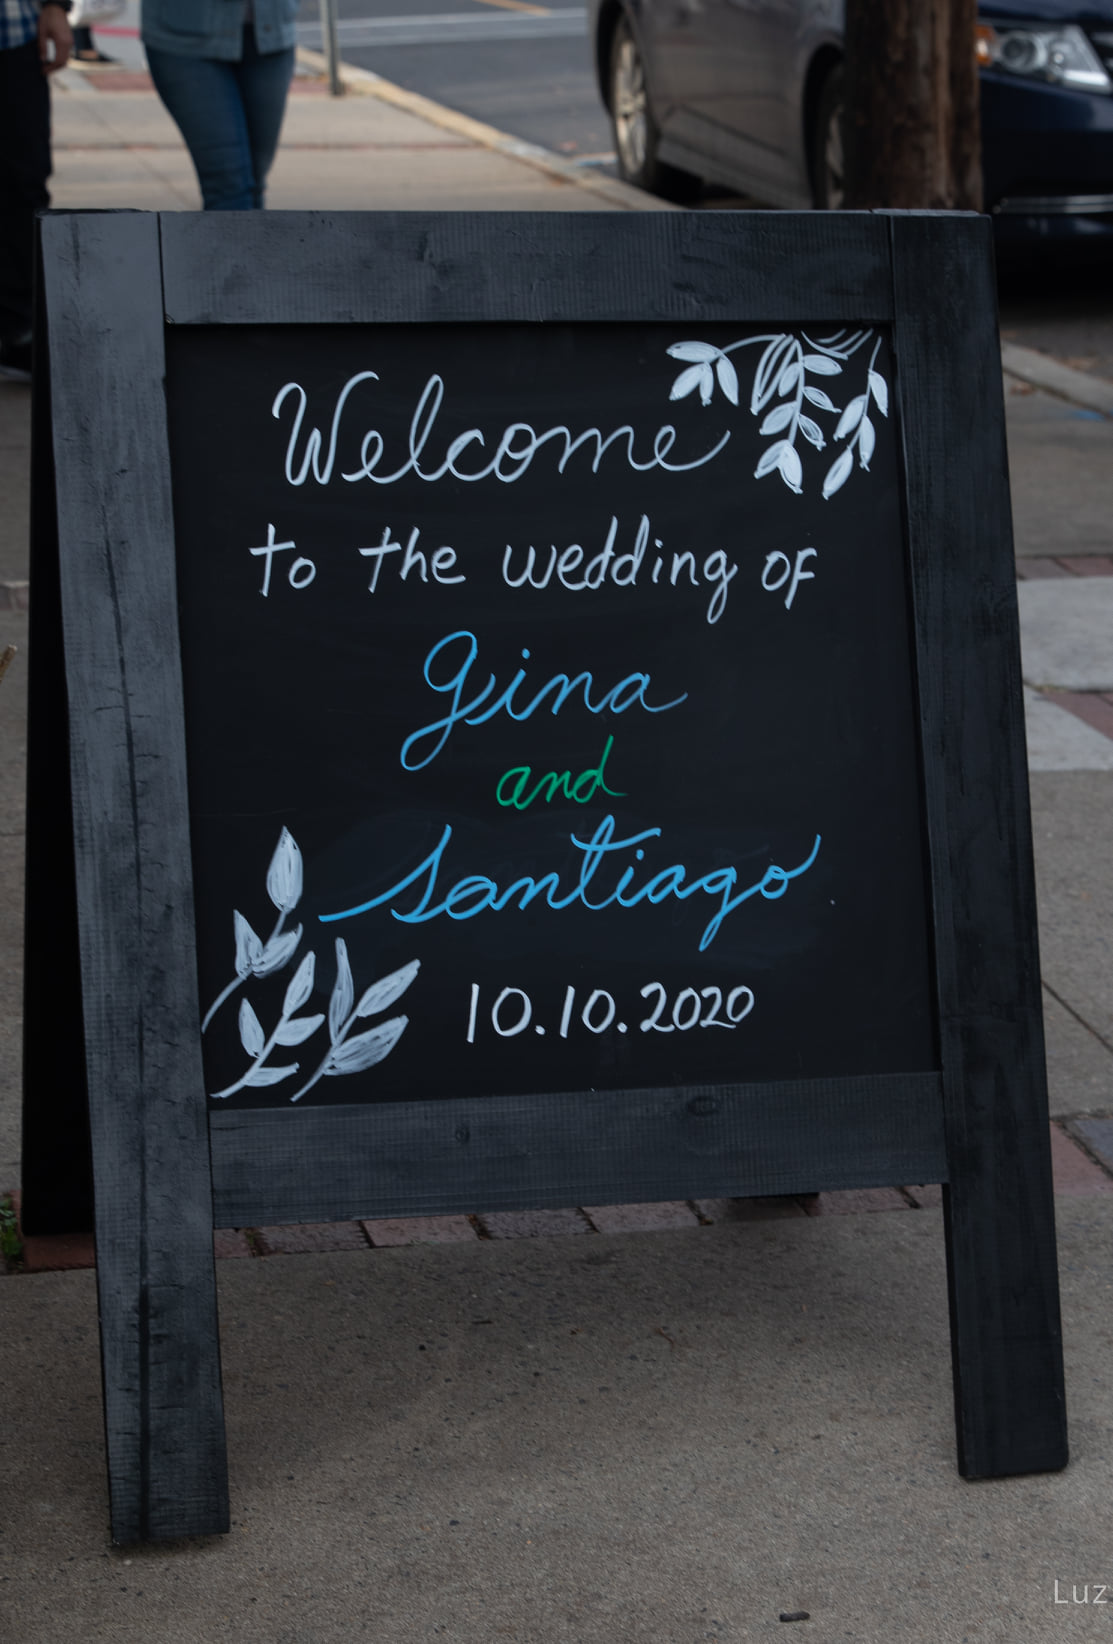 Welcome
to the wedding of
Gina
and
Santiago
10.10.2020
Luz